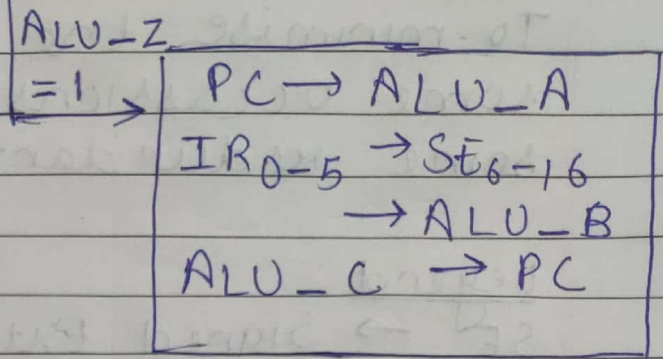 ALU_Z
=1
PC → ALU_A
IR0-5 → SE6-16
→ ALU_B
ALU_C → PC